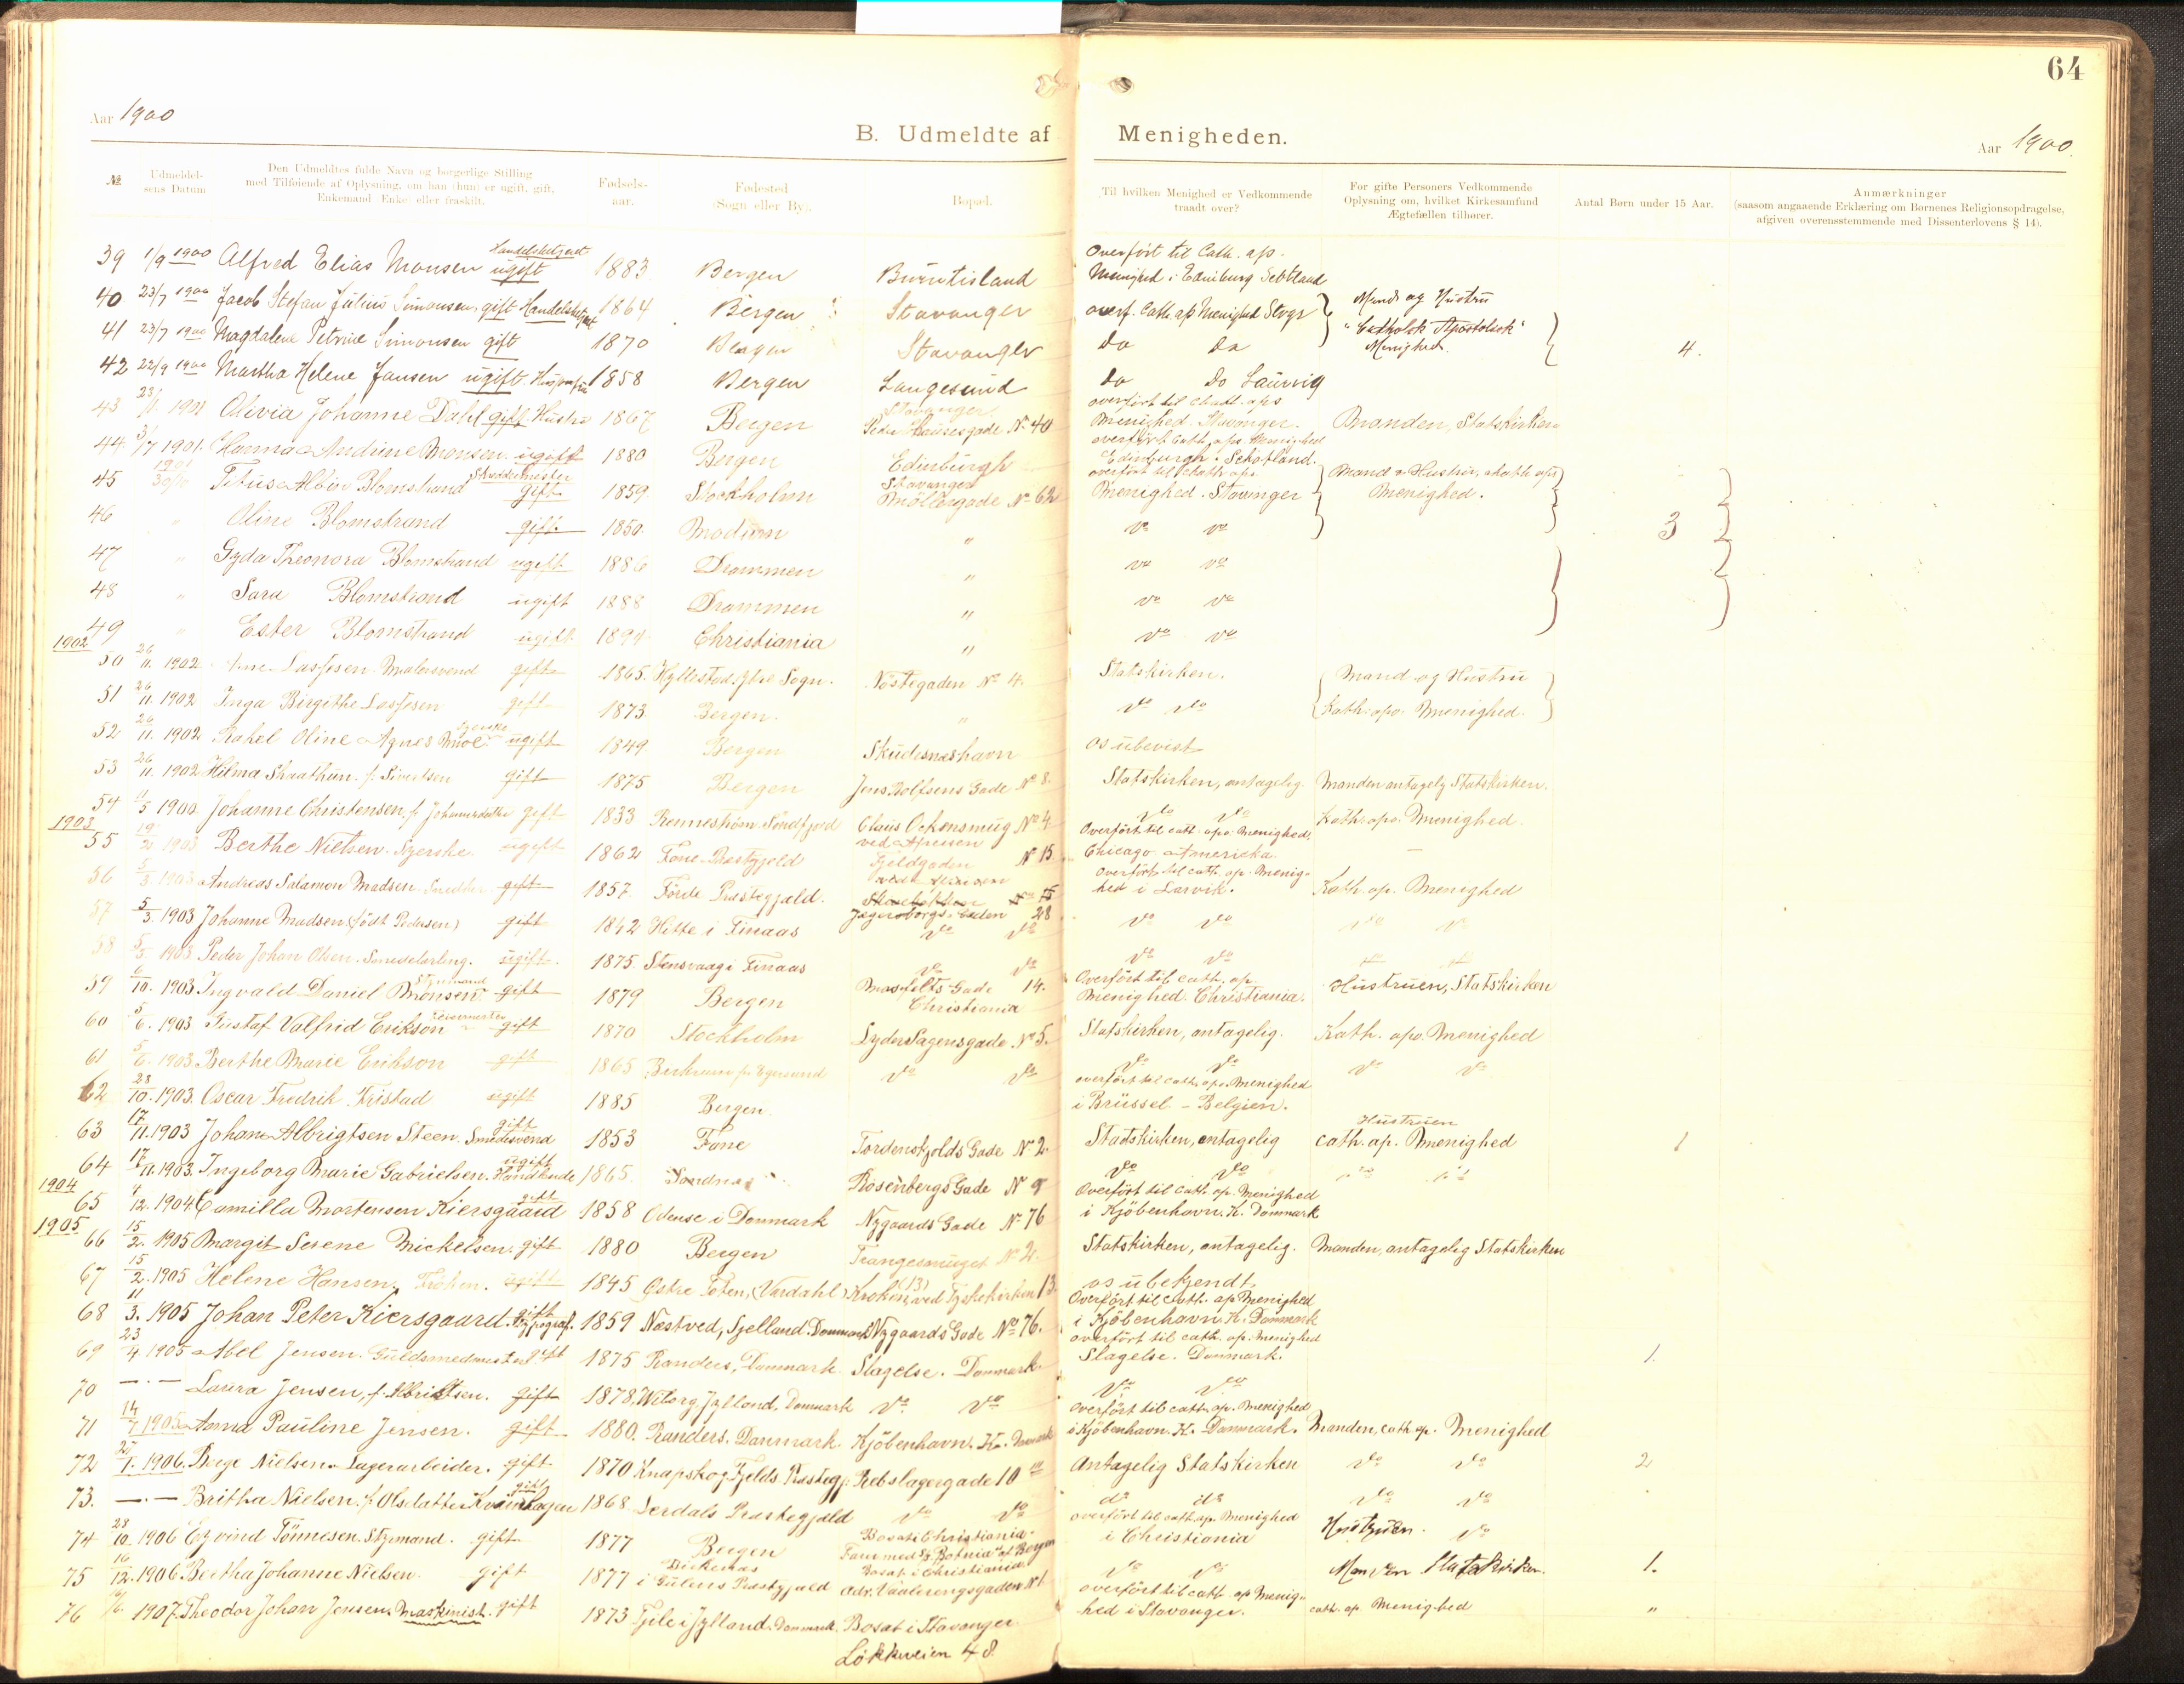 64
Aar 1900
B. Udmeldte af Menigheden.
Aar 1900.
№ Udmeldelsens Datum Den Udmeldtes fulde Navn og borgerlige Stilling med Tilføiende af Oplysning, om han (hun) er ugift, gift, Enkemand, Enke eller fraskilt. Fødselsaar. Fødested (Sogn eller By). Bopæl. Til hvilken Menighed er Vedkommende traadt over? For gifte Personers Vedkommende Oplysning om, hvilket Kirkesamfund Ægtefællen tilhører. Antal Børn under 15 Aar. Anmærkninger (saasom angaaende Erklæring om Børnenes Religionsopdragelse, afgiven overensstemmende med Dissenterlovens § 14).
39 1/9 1900 Alfred Elias Monsen Handelsbetjent ugift 1883 Bergen Burntisland Overført til Cath. ap. Menighed i Edinburg
40 23/7 1900 Jacob Stefan Julius Simonsen, gift 1864 Bergen Stavanger overf. Cath. ap Menighed Stvgr Mand og Hustru
41 23/7 1900 Magdalene Petrine Simonsen gift 1870 Bergen Stavanger do do "Catholsk Apostolisk" Menighed. 4.
42 22/9 1900 Martha Helene Jansen ugift 1858 Bergen Langesund do do Laurvig
43 1901 Olivia Johanne Dahl gift Hustru 1867 Bergen Stavanger No 40 overført til Menighed. Stavanger. Manden, Statskirken
44 1901. Hanna Andrine Monsen. ugift 1880 Bergen Edinburgh overført Cath. apo. Menighed Edinburgh. Schotland.
45 1901 Titus Albin Blomstrand gift 1859. Stockholm Stavanger Møllergade No 62 overført til Menighed. Stavanger Mand & Hustru, Menighed.
46 " Oline Blomstrand gift. 1850. Modum " do do 3
47 " Gyda Theonora Blomstrand ugift 1886 Drammen " do do
48 " Sara Blomstrand ugift 1888 Drammen " do do
49 " Ester Blomstrand ugift 1894 Christiania " do do
1902
50 26/11. 1902 Malersvend gift 1865. Hyllestad Ytre Sogn. Nøstegaden No 4. Statskirken. Mand og Hustru
51 26/11. 1902 Inga Birgithe gift 1873. Bergen. " do do Kath. apo. Menighed.
52 26/11. 1902 Rakel Oline Agnes Moe. ugift 1849. Bergen Skudesneshavn os ubevist
53 26/11. 1902 Hilma f. Sivertsen gift 1875 Bergen Jens Rolfsens Gade No 8. Statskirken, antagelig. Manden antagelig Statskirken.
54 1900. Johanne Christensen. gift 1833 Claus Ockensmug No 4 do do Kath. apo. Menighed.
1903
55 19/2 1903 Berthe Nielsen. Syerske. ugift 1862 Fane Præstgjeld Fjeldgaden No 15. Overført til cath. apo. Menighed, Chicago America.
56 5/3 1903 Andreas Salamon Madsen. gift 1857. Førde Præstegjæld. 28 overført til cath. ap. Menighed i Larvik. Kath. ap. Menighed
57 5/3. 1903 Johanne Madsen (født Pedersen) gift 1842 Hitte i Finaas do do do do do do
58 1903. Peder Johan Olsen. Smedelærling. ugift. 1875. Stensvaag i Finaas do do do do
59 6/10. 1903. Ingvald Daniel Monsen. Styrmand gift 1879 Bergen Gade 14. Christiania Overført til cath. ap. Menighed. Christiania. Hustruen, Statskirken
60 5/6. 1903 Gustaf Valfrid Erikson gift 1870 Stockholm Lyder Sagensgade No 5. Statskirken, antagelig. Kath. apo. Menighed
61 5/6. 1903. Berthe Marie Erikson gift 1865 do do do do do do
62 28/10. 1903. Oscar Fredrik Kristad ugift 1885 Bergen. overført til cath. ap. Menighed i Brüssel - Belgien.
63 17/11. 1903 Johan Albrigtsen Steen. Smedesvend gift 1853 Fane Tordenskjolds Gade No 2. Stadskirken, antagelig Hustruen cath. ap. Menighed 1
64 17/11. 1903. Ingeborg Marie Gabrielsen. ugift 1865. Rosenbergs Gade No 9 do do
1904
65 12. 1904. Camilla Mortensen Kiersgaard gift 1858 Odense i Danmark Nygaards Gade No 76 Overført til cath. ap. Menighed i Kjøbenhavn. K. Danmark
1905
66 15/2. 1905 Margit Serene Mickelsen. gift 1880 Bergen Trangesmuget No 2. Statskirken, antagelig. Manden, antagelig Statskirken
67 15/2. 1905 Helene Hansen, Frøken. ugift 1845 Østre Toten, (Vardahl) Kroken (13) ved Tyskekirken 13. os ubekjendt.
68 11/3. 1905 Johan Peter Kiersgaard. gift Typograf. 1859 Næstved, Sjelland. Danmark Nygaards Gade No 76. Overført til cath. ap Menighed i Kjøbenhavn. K. Danmark
69 23/4 1905 Abel Jensen. Guldsmedmester gift 1875 Randers, Danmark Slagelse. Danmark. overført til cath. ap. Menighed Slagelse. Danmark. 1.
70 — . — Laura Jensen, f. gift 1878. Jylland. Danmark do do do do
71 14/7 1905 Anna Pauline Jensen. gift 1880. Randers. Danmark. Kjøbenhavn. K. Danmark overført til cath. ap. Menighed i Kjøbenhavn. K. Danmark. Manden, cath. ap. Menighed
72 1. 1906. Børge Nielsen. Lagerarbeider. gift 1870 Rebslagergade 10 Antagelig Statskirken do do 2
73. — . — Britha Nielsen. f. Olsdatter gift 1868 Præstegjæld do do do do do do
74 28/10. 1906 Eyvind Tönnesen. Styrmand. gift. 1877 Bergen Bosat i Christiania. Botnia af Bergen overført til cath. ap. Menighed i Christiania Hustruen. do
75 16/12. 1906. Bertha Johanne Nielsen. gift 1877 i Gulens Præstgjæld Bosat i Christiania. Adr. Vaalerengsgaden No 1 do do Manden Statskirken. 1.
76 1907. Theodor Johan Jensen. Maskinist. gift 1873 i Jylland. Danmark. Bosat i Stavanger. Løkkeveien 48. overført til cath. ap Menighed i Stavanger. cath. ap. Menighed "